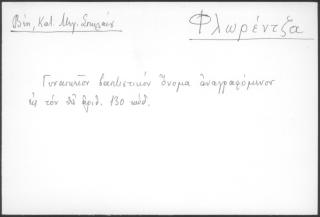 Βέη, Κατ. Μεγ. Σπηλαίου
Φλωρέντζα
Γυναικεῖον βαπτιστικὸν ὄνομα ἀναγραφόμενον
εἰς τὸν ὑπ' ἀριθ. 130 κώδ.